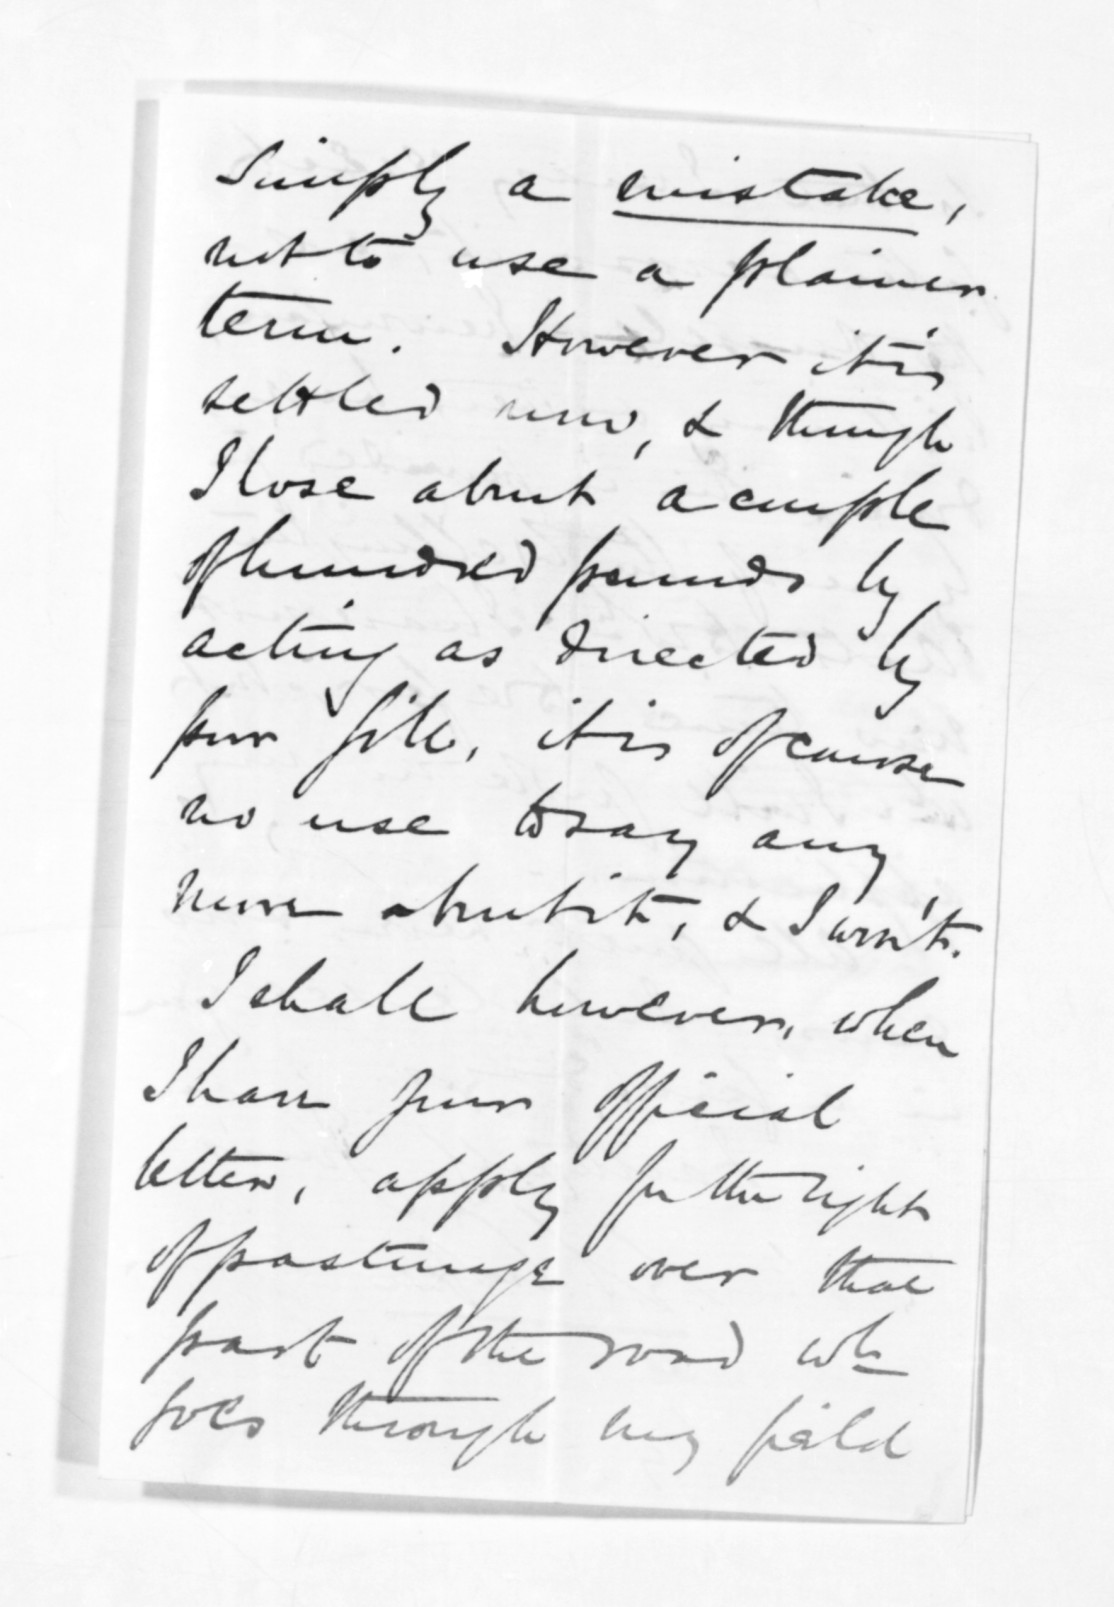 simply a mistake,
not to use a plainer
term. However it is
settled now, & though
I lose about a couple
of hundred pounds by
acting as directed by
your , it is of course
no use to say any
more about it, & I won't.
I shall however, when
I have your official
letter, apply for the right
of pasturage over that
part of the road wh
goes through my field